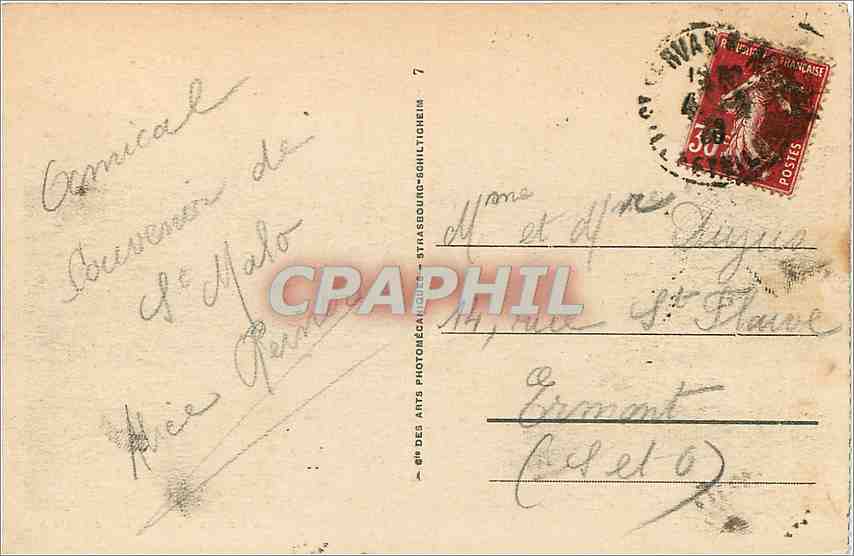 Amical
Souvenir de
St Malo
Alice
Cie DES ARTS PHOTOMÉCANIQUES – STRASBOURG-SCHILTIGHEIM 7
CPAPHIL
RÉPUBLIQUE FRANÇAISE
30c
POSTES
SERVAN
Mme et Mr
14, rue St Flaive
Ermont
(S et O)